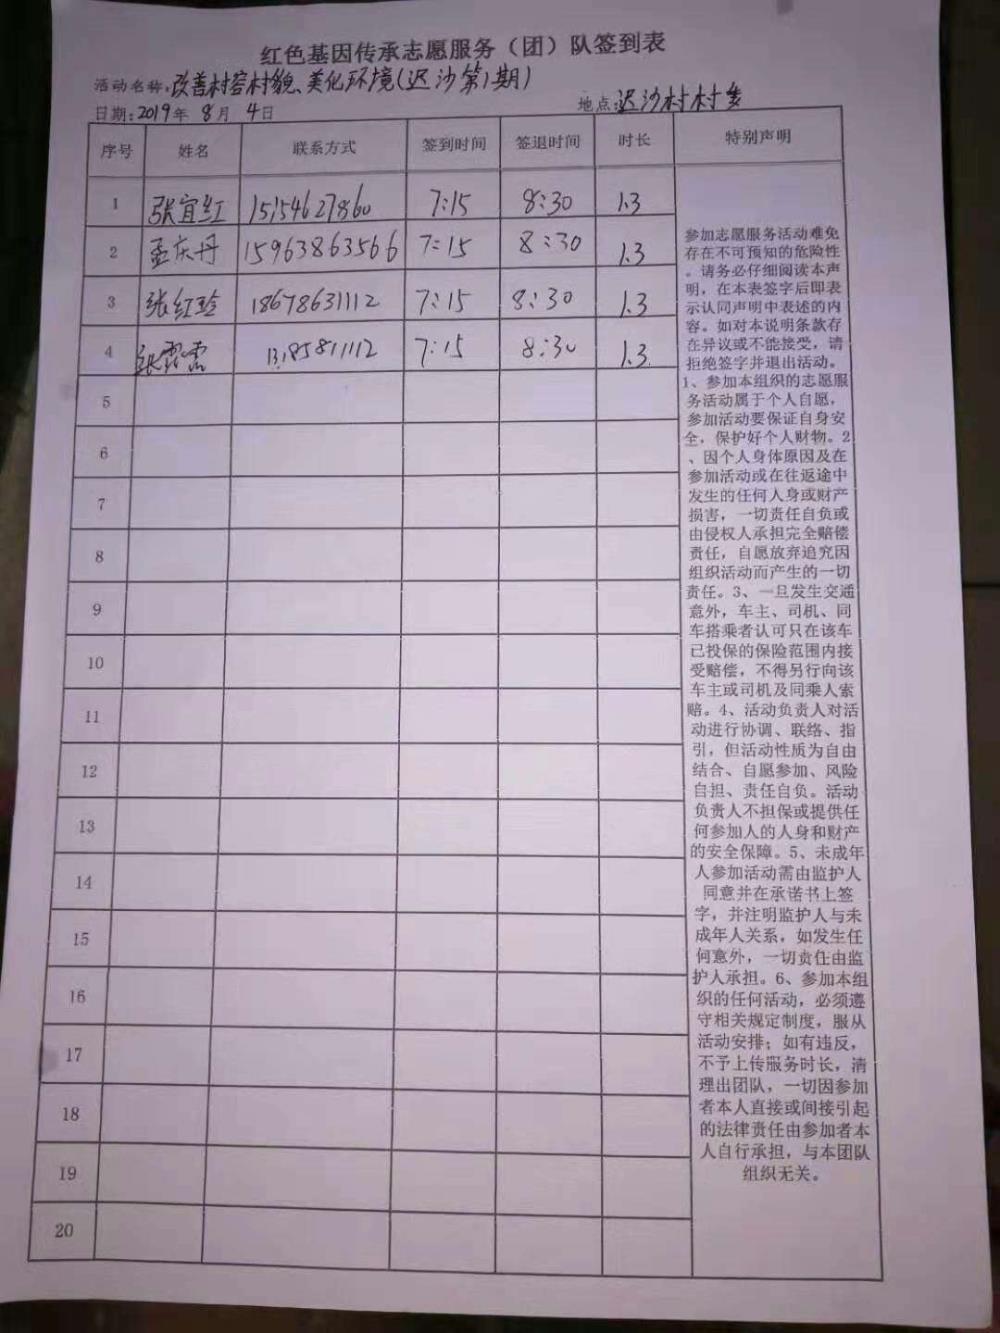 红色基因传承志愿服务（团）队签到表
活动名称:改善村容村貌、美化环境(迟沙第1期)
日期:2019年 8月 4日 地点:迟沙村村乡
序号 姓名 联系方式 签到时间 签退时间 时长 特别声明
1 张宜红 15154627860 7:15 8:30 1.3
2 孟庆丹 15963863566 7:15 8:30 1.3
3 张红玲 18678631112 7:15 8:30 1.3
4 张霞 13185811112 7:15 8:30 1.3
5
6
7
8
9
10
11
12
13
14
15
16
17
18
19
20
参加志愿服务活动难免
存在不可预知的危险性
。请务必仔细阅读本声
明，在本表签字后即表
示认同声明中表述的内
容。如对本说明条款存
在异议或不能接受，请
拒绝签字并退出活动。
1、参加本组织的志愿服
务活动属于个人自愿，
参加活动要保证自身安
全，保护好个人财物。2
、因个人身体原因及在
参加活动或在往返途中
发生的任何人身或财产
损害，一切责任自负或
由侵权人承担完全赔偿
责任，自愿放弃追究因
组织活动而产生的一切
责任。3、一旦发生交通
意外，车主、司机、同
车搭乘者认可只在该车
已投保的保险范围内接
受赔偿，不得另行向该
车主或司机及同乘人索
赔。4、活动负责人对活
动进行协调、联络、指
引，但活动性质为自由
结合、自愿参加、风险
自担、责任自负。活动
负责人不担保或提供任
何参加人的人身和财产
的安全保障。5、未成年
人参加活动需由监护人
同意并在承诺书上签
字，并注明监护人与未
成年人关系，如发生任
何意外，一切责任由监
护人承担。6、参加本组
织的任何活动，必须遵
守相关规定制度，服从
活动安排；如有违反，
不予上传服务时长，清
理出团队，一切因参加
者本人直接或间接引起
的法律责任由参加者本
人自行承担，与本团队
组织无关。